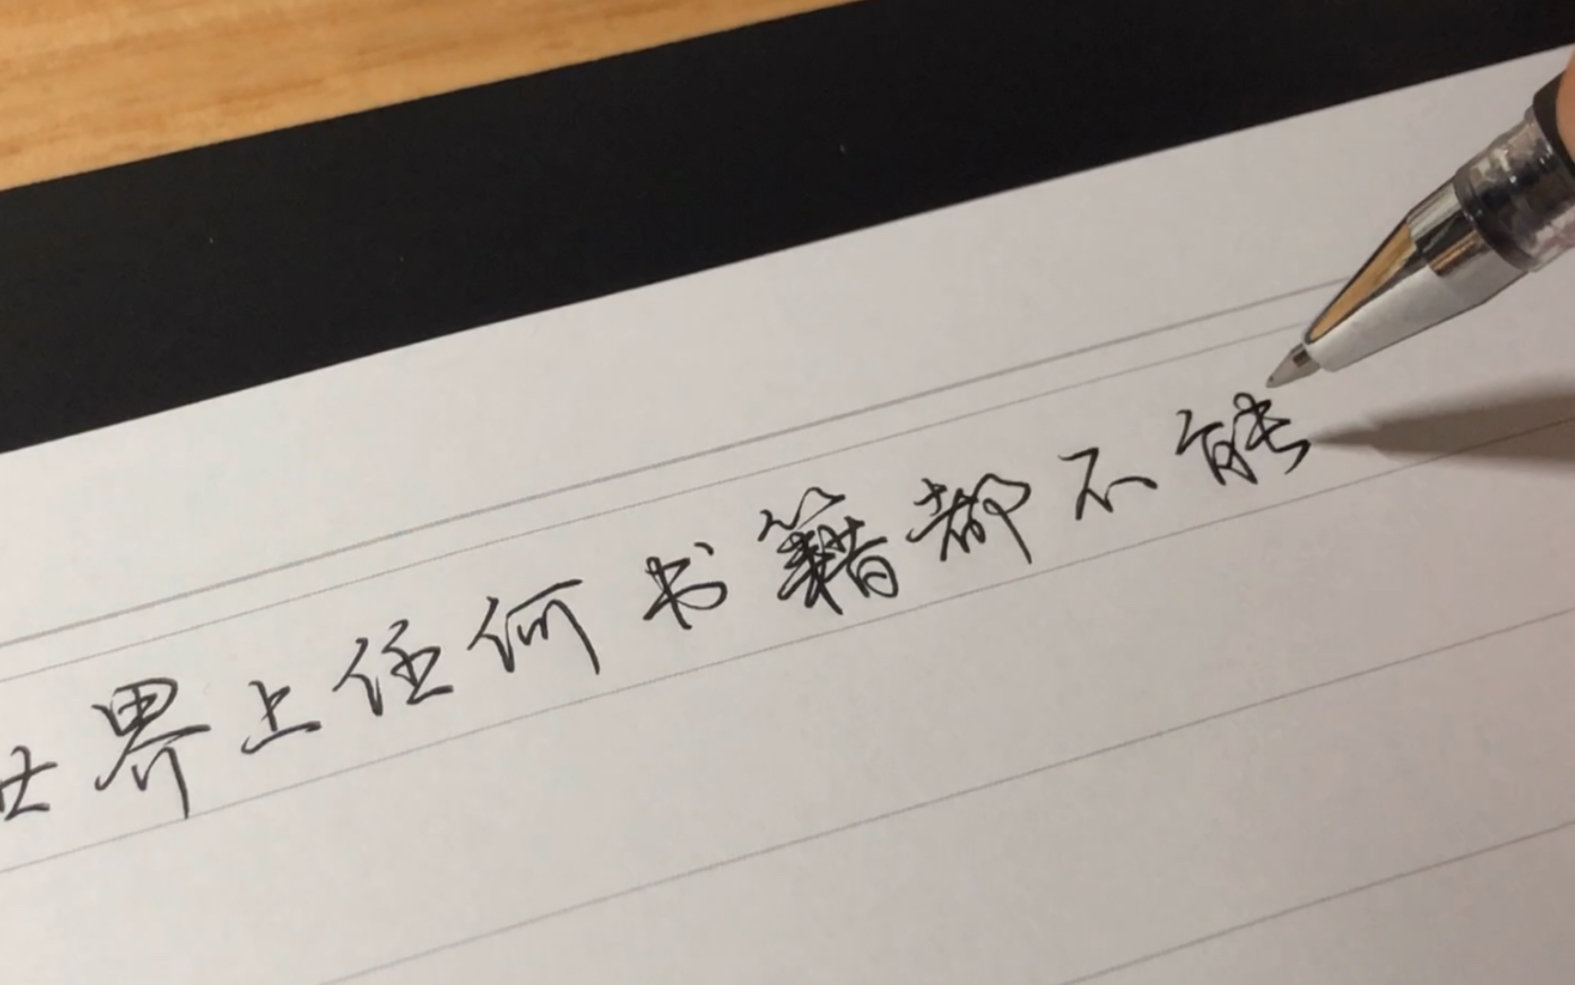 世界上任何书籍都不能